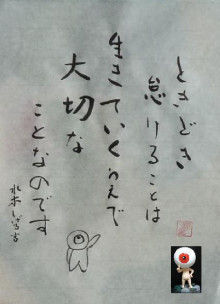 ときどき
怠けることは
生きていくうえで
大切な
ことなのです
水木しげる